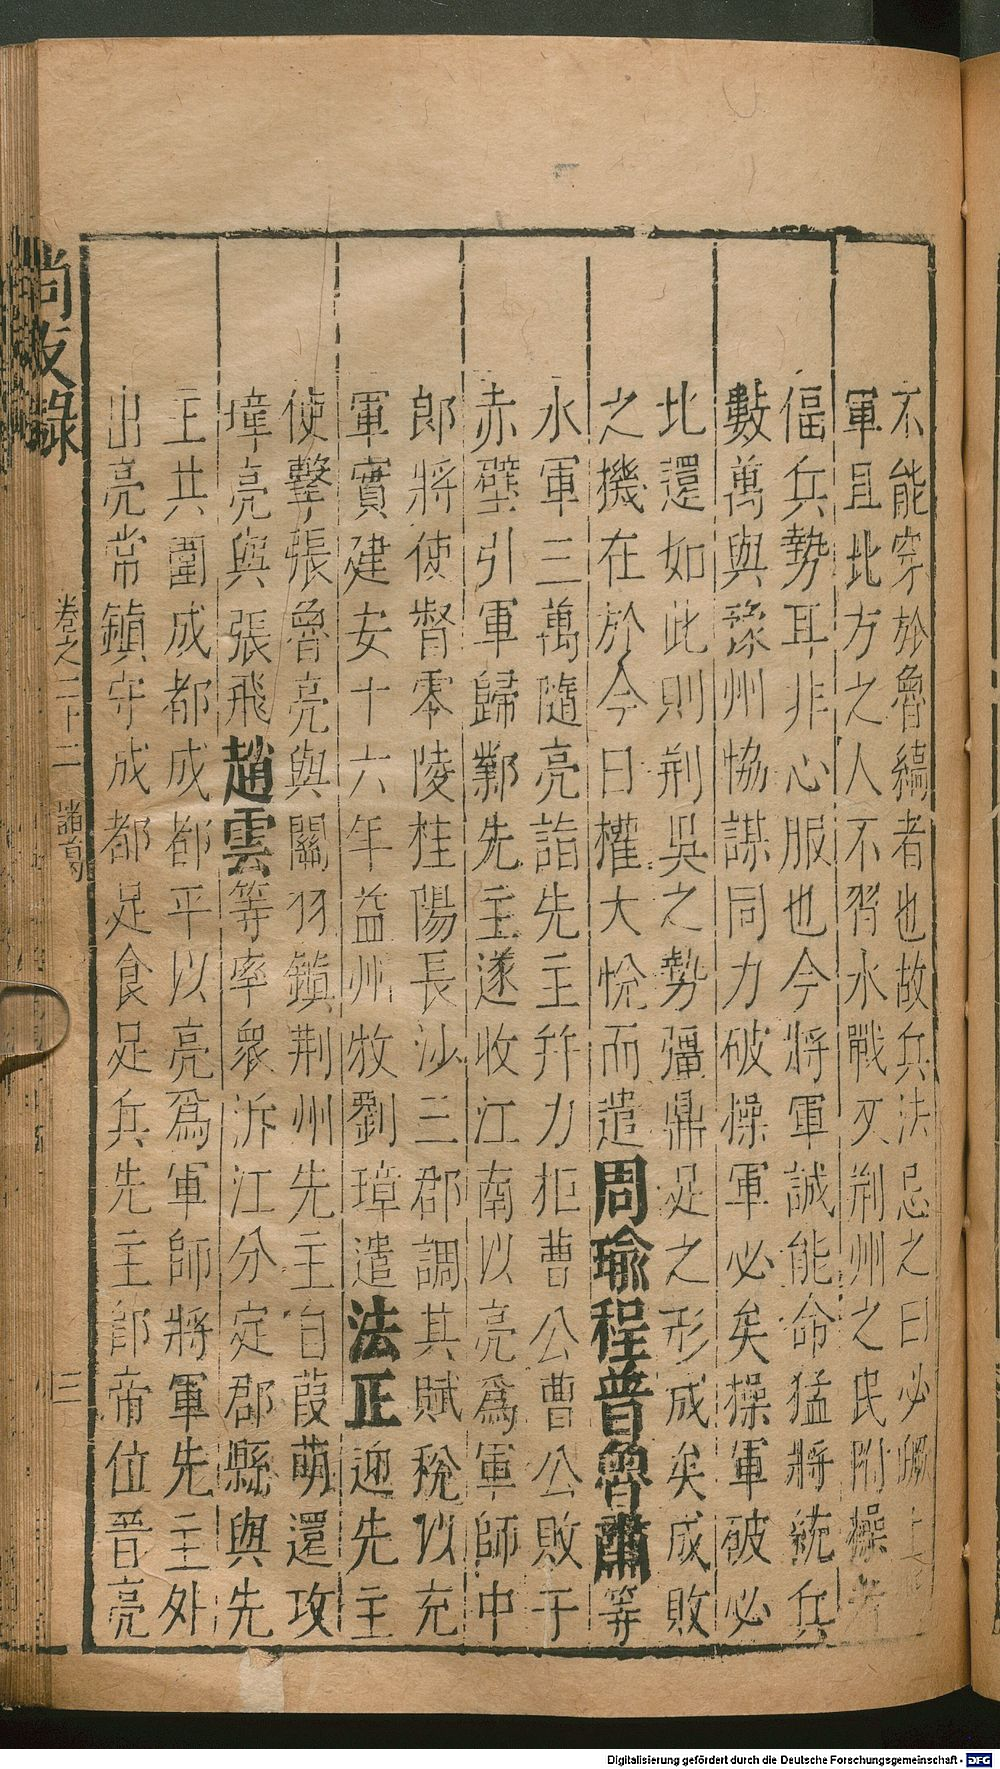 不能穿於魯縞者也故兵法忌之曰必蹶上將
軍且北方之人不習水戰又荆州之民附操者
偪兵勢耳非心服也今將軍誠能命猛將統兵
數萬與豫州恊謀同力破操軍必矣操軍破必
北還如此則荆吳之勢彊鼎足之形成矣成敗
之機在於今日權大悅而遣周瑜程普魯肅等
水軍三萬隨亮詣先主幷力拒曹公曹公敗于
赤壁引軍歸鄴先主遂收江南以亮爲軍師中
郎將使督零陵桂陽長沙三郡調其賦稅以充
軍實建安十六年益州牧劉璋遣法正迎先主
使擊張魯亮與關羽鎮荆州先主自葭萌還攻
璋亮與張飛趙雲等率衆泝江分定郡縣與先
主共圍成都成都平以亮爲軍師將軍先主外
出亮常鎮守成都足食足兵先主卽帝位晉亮
尚友錄 卷之二十二 諸葛 三
Digitalisierung gefördert durch die Deutsche Forschungsgemeinschaft - DFG